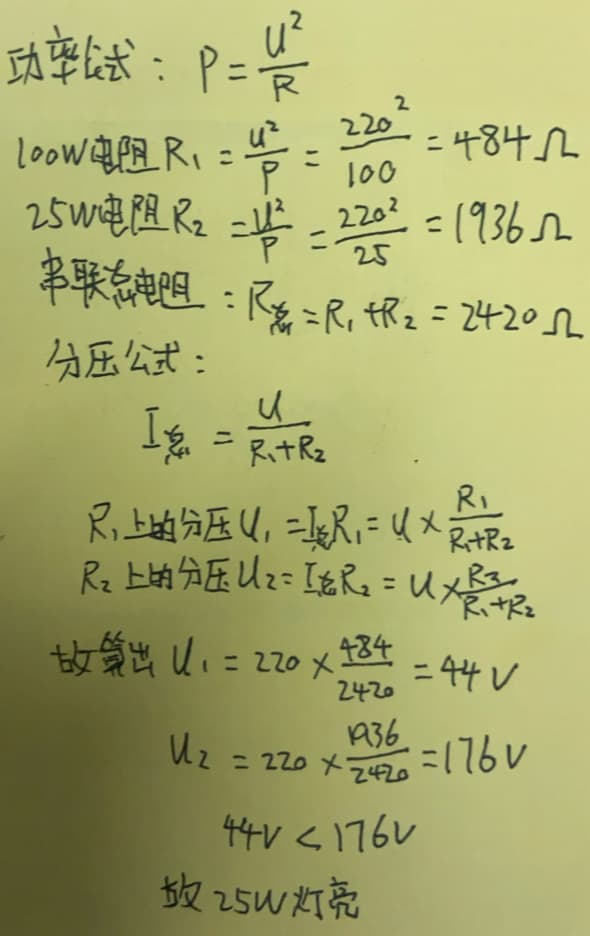 功率公式：P = U²/R
100W电阻R₁ = U²/P = 220²/100 = 484Ω
25W电阻R₂ = U²/P = 220²/25 = 1936Ω
串联总电阻：R总 = R₁+R₂ = 2420Ω
分压公式：
I总 = U/(R₁+R₂)
R₁上的分压U₁ = I总R₁ = U × R₁/(R₁+R₂)
R₂上的分压U₂ = I总R₂ = U × R₂/(R₁+R₂)
故算出 U₁ = 220 × 484/2420 = 44V
U₂ = 220 × 1936/2420 = 176V
44V < 176V
故 25W灯亮